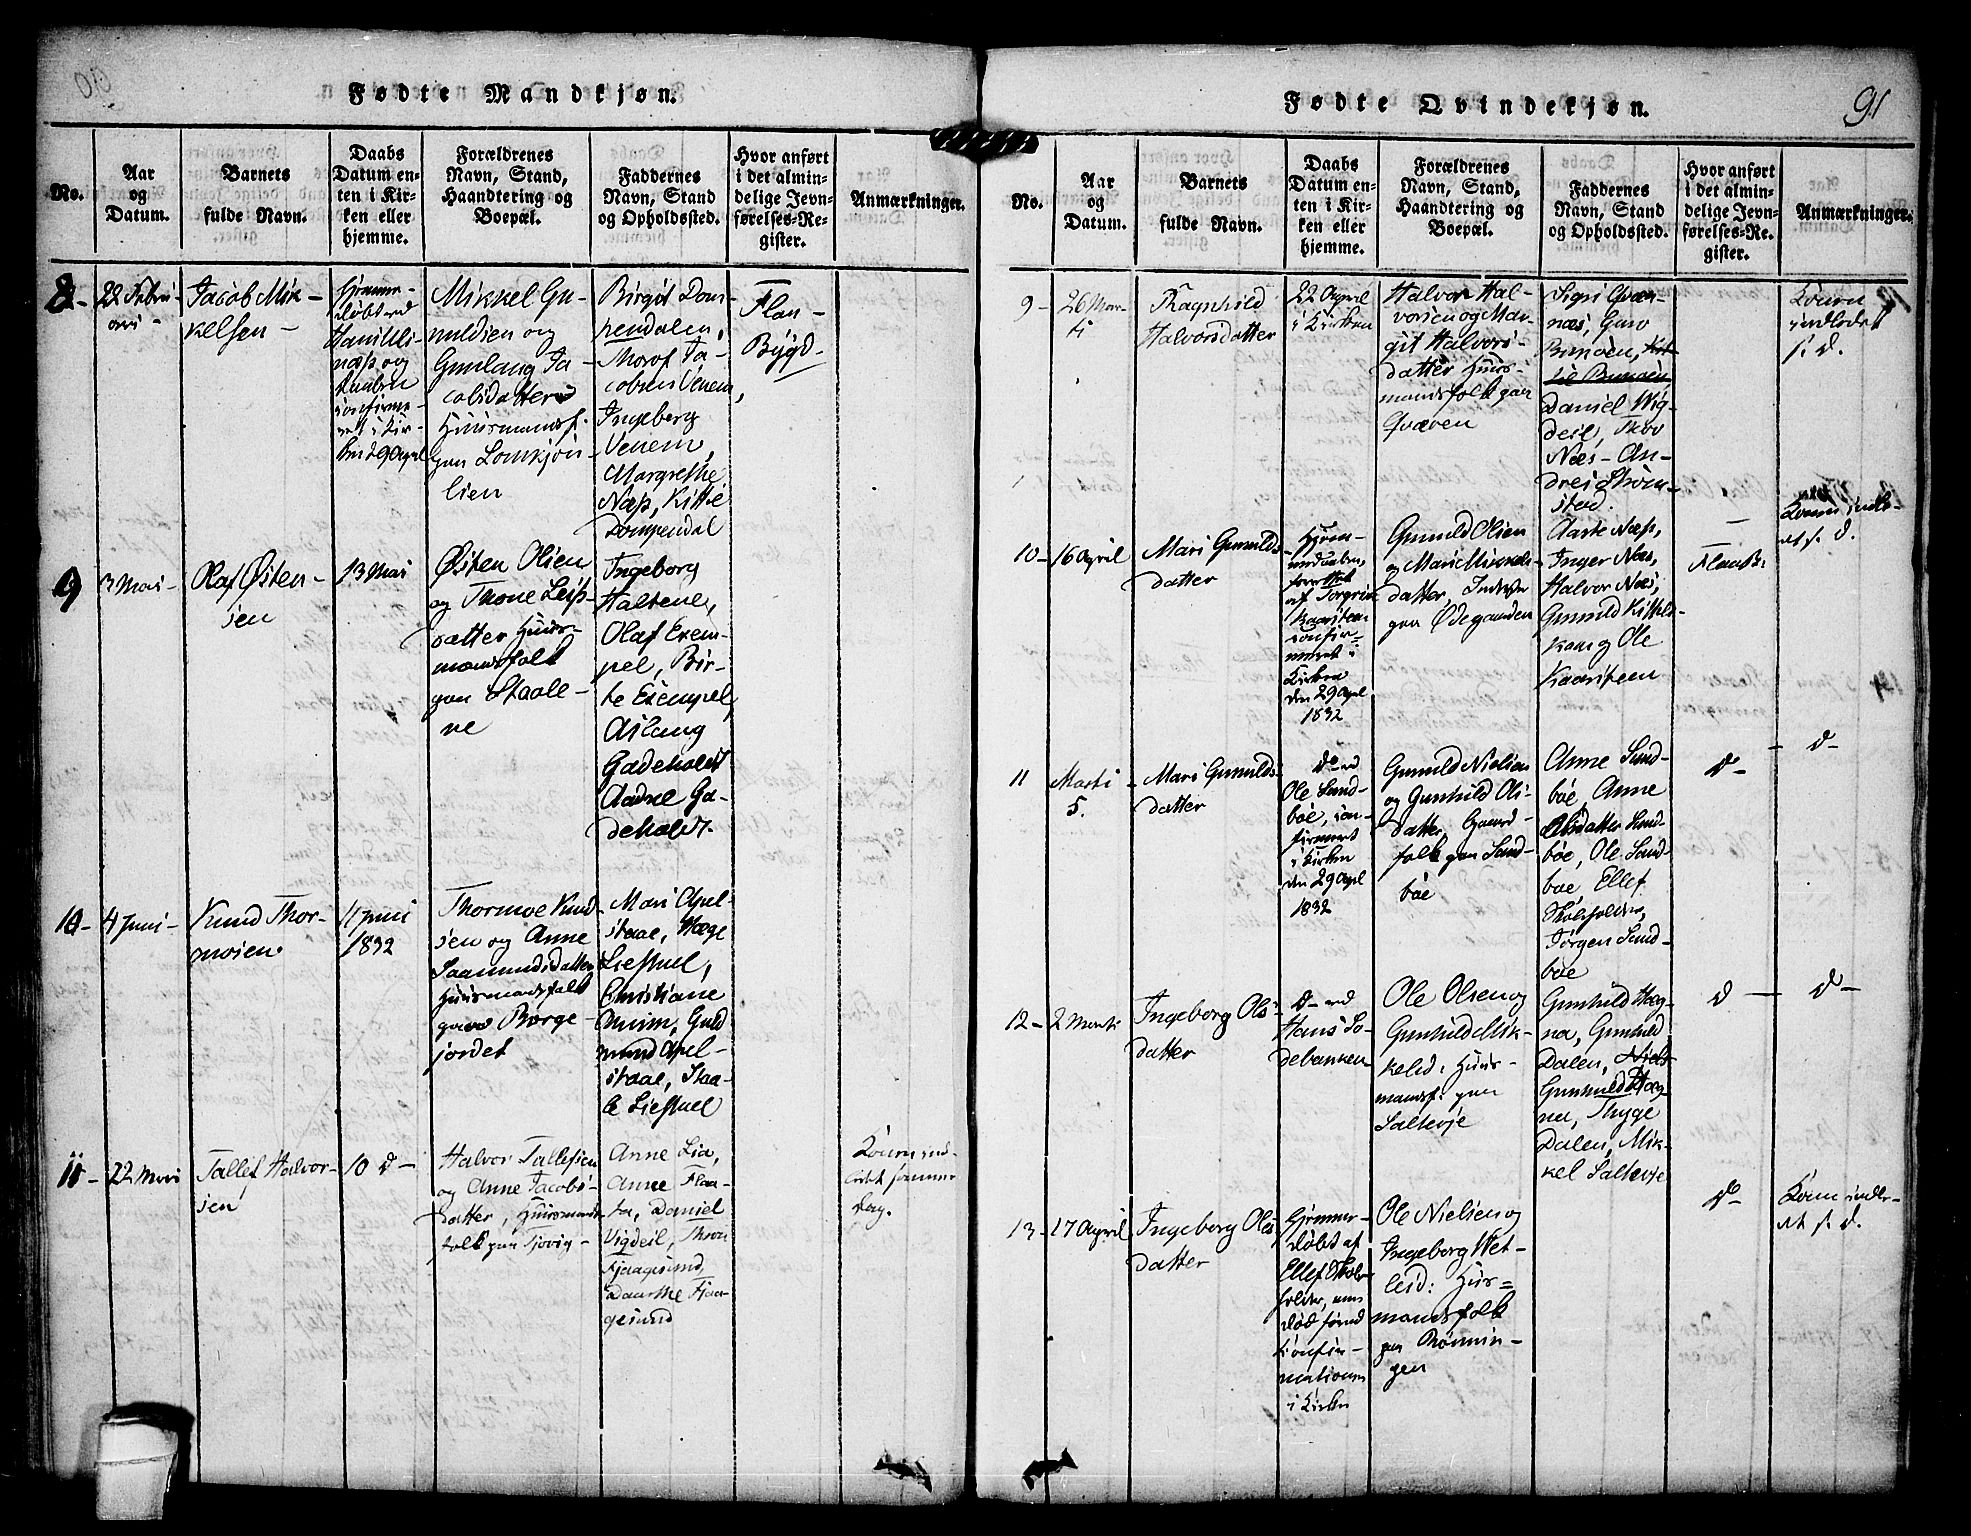 Fødte Mandkjøn.
No.
Aar
og
Datum.
Barnets
fulde Navn.
Daabs
Datum en-
ten i Kir-
ken eller
hjemme.
Forældrenes
Navn, Stand,
Haandtering og
Boepæl.
Faddernes
Navn, Stand
og Opholdssted.
Hvor anført
i det almin-
delige Jevn-
førelses-Re-
gister.
Anmærkninger.
8-
22 Febru
ari -
Jacob Mik-
kelsen -
Hjemme-
døbt ved
Næss og
Daaben
confirme-
ret i Kir-
ken d 29 April
Mikkel Gu-
nuldsen og
Gunlaug Ja-
cobsdatter
Huusmandsf.
paa Lomkjøn-
lien
Birgit Dom-
pendalen,
Jacobsen Venem,
Ingeborg
Venem,
Margrethe
Næss, Kittie
Dompendal
Flaa-
Bygd-
9
3 Mai-
Olaf Østen-
sen
13 Mai
Østen Olsen
og Thone Leifs-
datter Huus-
mandsfolk
paa Staale-
ne
Ingeborg
Haltene,
Olaf Exem-
pel, Bir-
te Exempel,
Aslaug
Gadeholdt
Aadne Ga-
deholdt.
10-
4 Juni-
Knud Thor-
mosen
11 Juni
1832
Thormoe Knud-
sen og Anne
Saamundsdatter
Huusmandsfolk
paa Borge-
jordet
Mari Apel-
staae, Hæge
Liestuel,
Christiane
Munim, Guld
mund Apel-
staae, Staa-
le Liestuel
11-
22 Mari
Tallef Halvor-
sen
10 d-
Halvor Tallefsen
og Anne Jacobs-
datter, Huusmands
folk paa Tjovig-
Anne Lia,
Anne Flaa-
ta, Daniel
Vigdeil, Thron
Fjaagesund,
Daarthe Fjaa-
gesund
Konen ind-
ledet samme
Dag.
Fødte Qvindekjøn.
91
No.
Aar
og
Datum.
Barnets
fulde Navn.
Daabs
Datum en-
ten i Kir-
ken eller
hjemme.
Forældrenes
Navn, Stand,
Haandtering og
Boepæl.
Faddernes
Navn, Stand
og Opholdssted.
Hvor anført
i det almin-
delige Jevn-
førelses-Re-
gister.
Anmærkninger.
9-
26 Mar-
ti
Ragnhild
Halvorsdatter
22 April
i Kirken
Halvor Hal-
vorsen og Mar-
git Halvors-
datter Huus-
mandsfolk paa
Qvæven
Sigri Qvæv-
næs, Guro
Bunøen, Kit-
tie Bunøen
Daniel Wig-
deil, Thov
Næs- An-
drei Strøm-
stad.
Konen
indledet
s. d.
10-
16 April
Mari Gunulds-
datter
Hjem-
af Torgrim
Kaasteen
confir-
meret i
Kirken
den 29 April
1832
Gunuld Olsen
og Mari Mikkels-
datter,
paa Ødegaarden
Aaste Næss,
Inger Næs,
Halvor Næs,
Gunuld
og Ole
Kaasteen
FlaaB:
Konen indle-
det s. d.
11
Marti
5.
Mari Gunulds-
datter
do ved
Ole Sund-
bøe, con-
firmeret
i Kirken
den 29 April
1832
Gunuld Nielsen
og Gunhild Ols-
datter, Gaard-
folk paa Sund-
bøe
Anne Sund-
bøe, Anne
Olsdatter Sund-
bøe, Ole Sund-
bøe Ellef
Jørgen Sund-
bøe
d-
- d-
12-
2 Marti
Ingeborg Ols-
datter
d- ved
Hans Lo-
debakken
Ole Olsen og
Gunhild Mik-
kelsd: Huus-
mandsf: paa
Saltevje
Gunhild Hæg-
na, Gunuld
Dalen, Niels
Gunhild Hæg-
na, Thyge
Dalen, Mik-
kel Saltevje
d -
d-
13-
17 April
Ingeborg Ols-
datter
Hjemme-
døbt af
Ellef
død førend
Confir-
mationen
i Kirken
Ole Nielsen og
Ingeborg Wet-
lesd: Huus=
mandsfolk
paa Rønnin-
gen
do-
Konen indle-
det s. d.